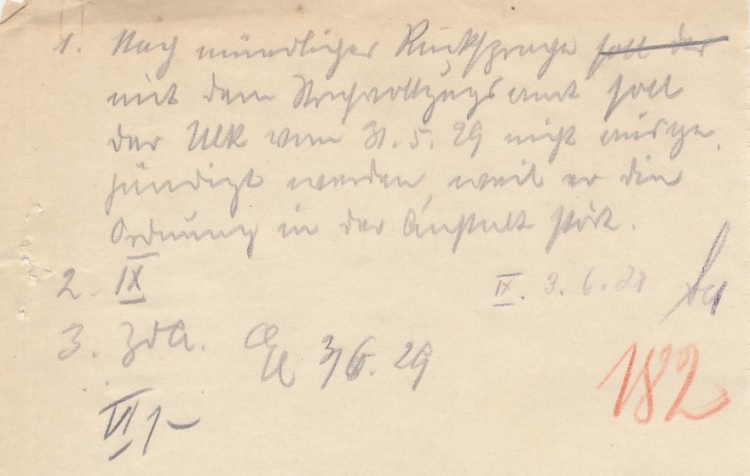 1. Nach mündlicher Rücksprache soll der
mit dem Strafvollzugsamt soll
der Ulk vom 31.5.29 nicht ausge-
händigt werden, weil er die
Ordnung in der Anstalt stört.
2. IX
IX. 3.6.29
3. ZdA. 3/6.29
182
VI 1-